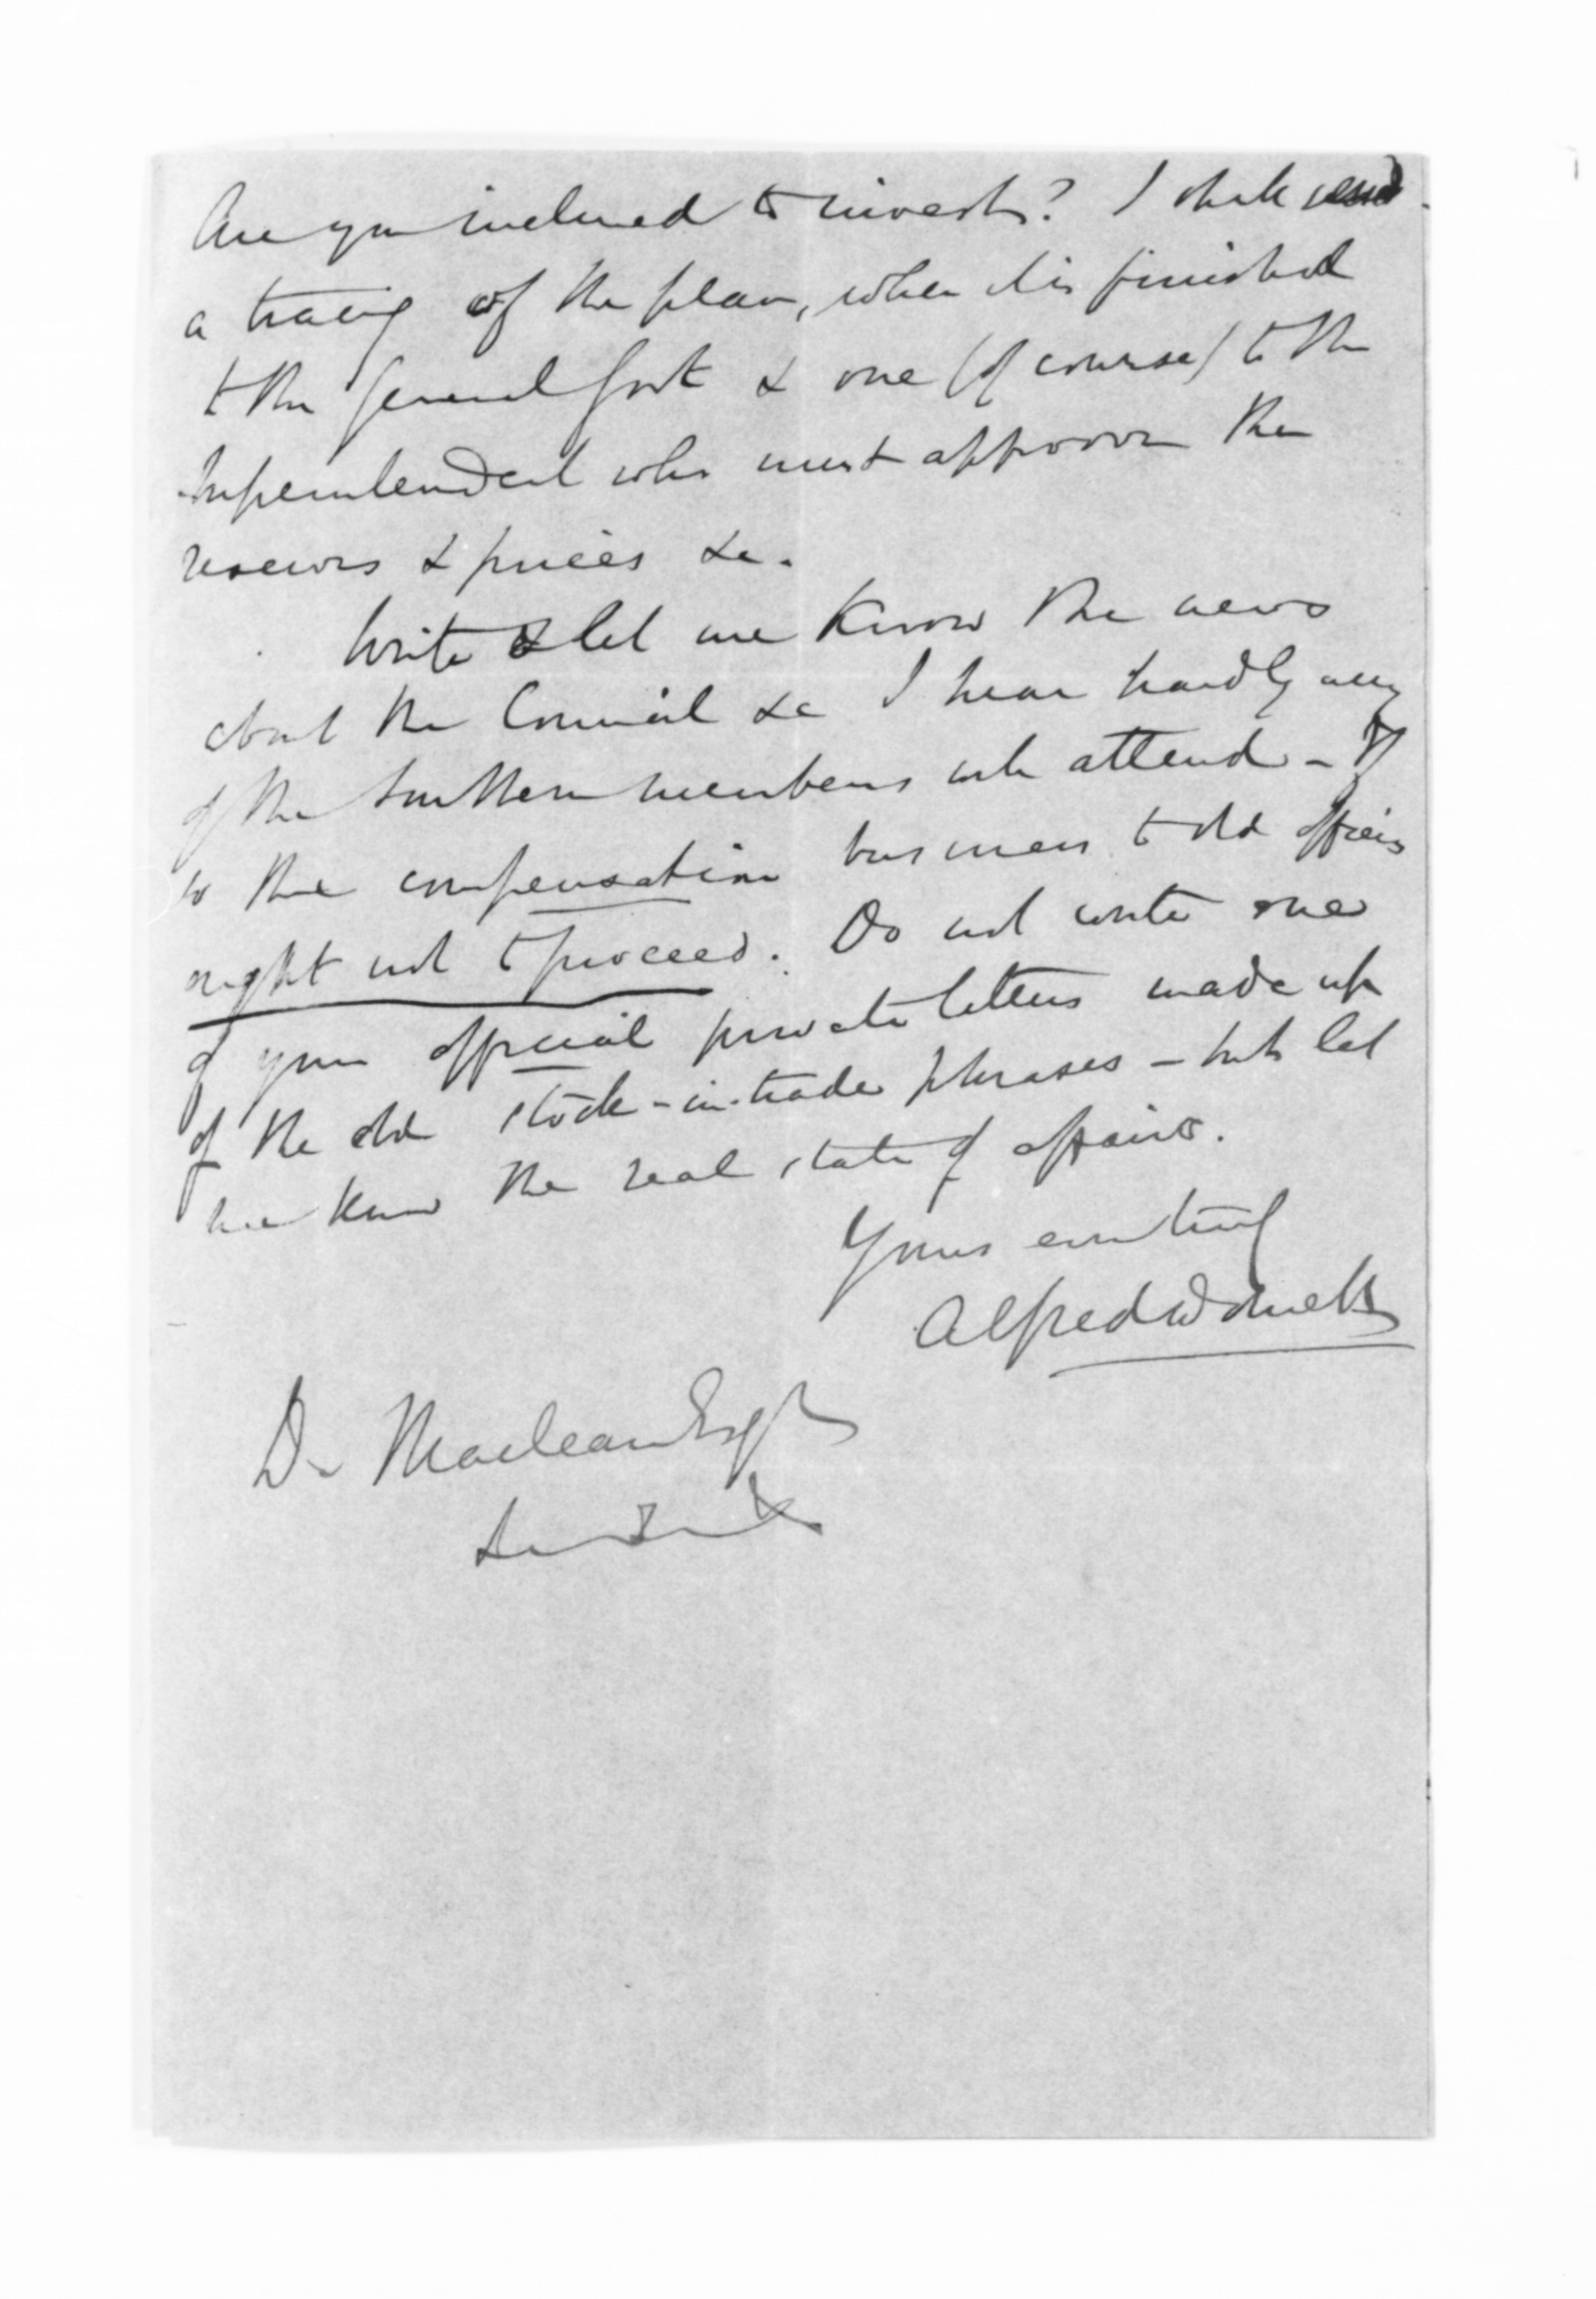 Are you inclined to invest? I shall send
a tracing of the plan, when it is finished
to the General Govt & one (of course) to the
Superintendent who must approve the
reserves & prices &c.
Write & let me know the news
about the Council &c I hear hardly any
of the Southern members will attend - If
so the compensation business to old officers
ought not to proceed. Do not write one
of your official private letters made up
of the old stock-in-trade phrases - but let
me know the real state of affairs.
Yours ever truly
Alfred Domett
Dr Maclean Esqr